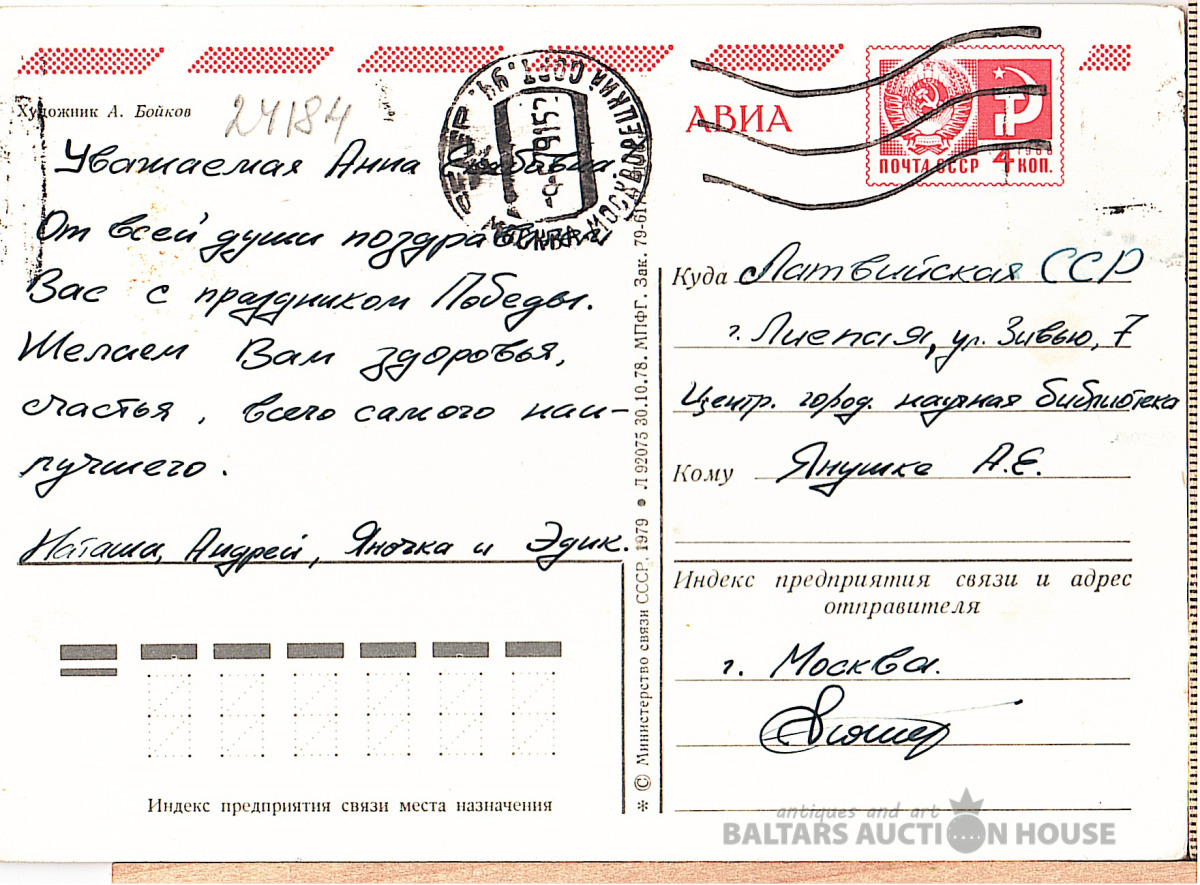 Художник А. Бойков
24184
Уважаемая Анна
От всей души поздравляем
Вас с праздником Победы.
Желаем Вам здоровья,
счастья, всего самого наи-
лучшего.
Наташа, Андрей, Яночка и Эдик.
Индекс предприятия связи места назначения
МОСКВА
МОСКВОРЕЦКИЙ СОРТ.
* © Министерство связи СССР, 1979 ● Л 92075 30.10.78. МПФГ. Зак. 79-61
АВИА
ПОЧТА СССР 4 КОП.
1966
Куда Латвийская ССР
г. Лиепая, ул. Зивью, 7
Центр. город. научная библиотека
Кому Янушка А.Е.
Индекс предприятия связи и адрес
отправителя
г. Москва.
antiques and art
BALTARS AUCTION HOUSE